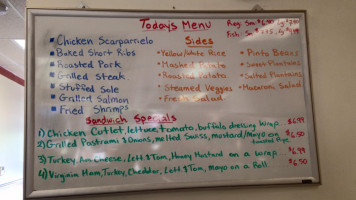 Today's Menu
Chicken Scarparrielo
Baked Short Ribs
Roasted Pork
Grilled Steak
Stuffed Sole
Grilled Salmon
Fried Shrimps
Sides
Yellow/White Rice
Mashed Potato
Roasted Potato
Steamed Veggies
Fresh Salad
Pinto Beans
Sweet Plantains
Salted Plantains
Macaroni Salad
Sandwich Specials
1) Chicken Cutlet, lettuce, tomato, buffalo dressing Wrap. $6.99
2) Grilled Pastrami & Onions, melted Swiss, mustard/Mayo on $6.50
3) Turkey, Am. Cheese, Lett & Tom, Honey Mustard on a wrap. $6.99
4) Virginia Ham, Turkey, Cheddar, Lett & Tom, mayo on a Roll. $6.50